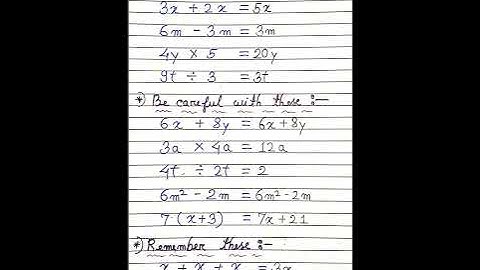 3x + 2x = 5x
6m - 3m = 3m
4y × 5 = 20y
9t ÷ 3 = 3t
*) Be careful with these :-
6x + 8y = 6x+8y
3a × 4a = 12a
4t ÷ 2t = 2
6m² - 2m = 6m²-2m
7·(x+3) = 7x+21
*) Remember these :-
x + x + x = 3x